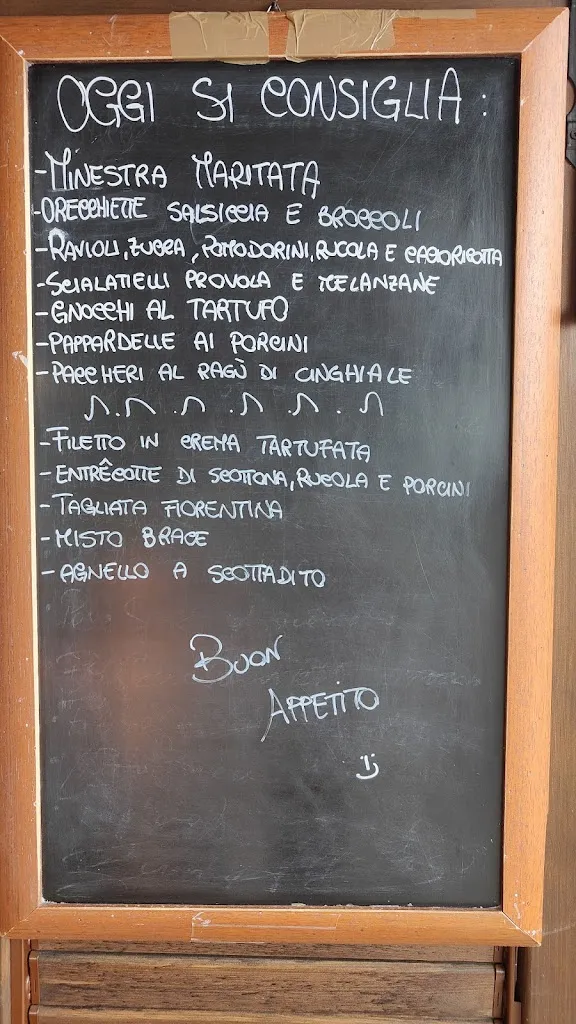 OGGI SI CONSIGLIA:
-MINESTRA MARITATA
-ORECCHIETTE SALSICCIA E BROCCOLI
-RAVIOLI, ZUCCA, POMODORINI, RUCOLA E CACIORICOTTA
-SCIALATIELLI PROVOLA E MELANZANE
-GNOCCHI AL TARTUFO
-PAPPARDELLE AI PORCINI
-PACCHERI AL RAGÙ DI CINGHIALE
-FILETTO IN CREMA TARTUFATA
-ENTRÊCOTTE DI SCOTTONA, RUCOLA E PORCINI
-TAGLIATA FIORENTINA
-MISTO BRACE
-AGNELLO A SCOTTADITO
BUON
APPETITO